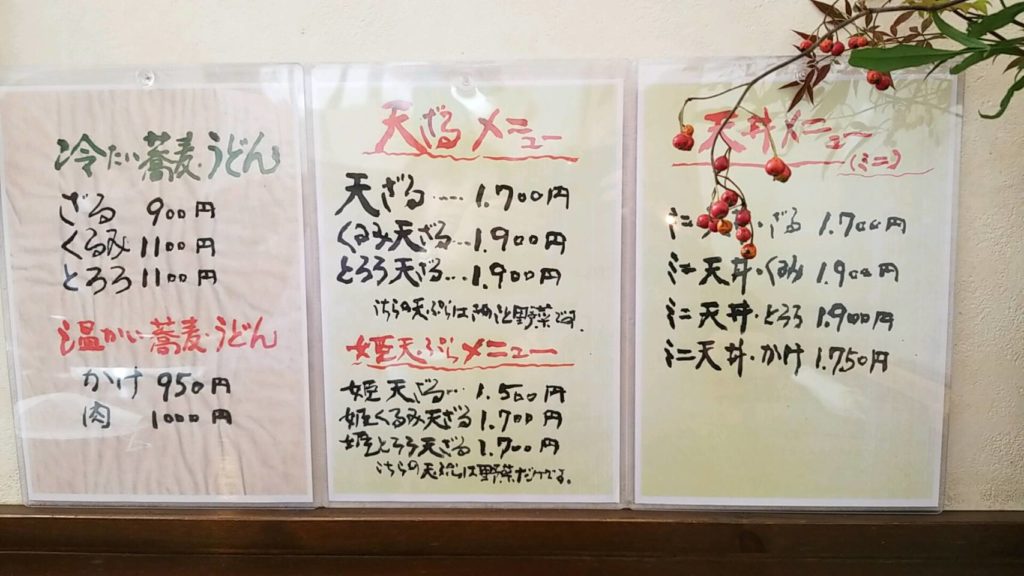 冷たい蕎麦・うどん
ざる 900円
くるみ 1100円
とろろ 1100円
温かい蕎麦・うどん
かけ 950円
肉 1000円
天ざるメニュー
天ざる..... 1.700円
くるみ天ざる... 1.900円
とろろ天ざる... 1.900円
こちらの天ぷらは と野菜です。
姫天ぷらメニュー
姫天ざる... 1.500円
姫くるみ天ざる 1.700円
姫とろろ天ざる 1.700円
こちらの天ぷらは野菜だけです。
天丼メニュー
(ミニ)
ミニ天丼・ざる 1.700円
ミニ天丼・くるみ 1.900円
ミニ天丼・とろろ 1.900円
ミニ天丼・かけ 1.750円